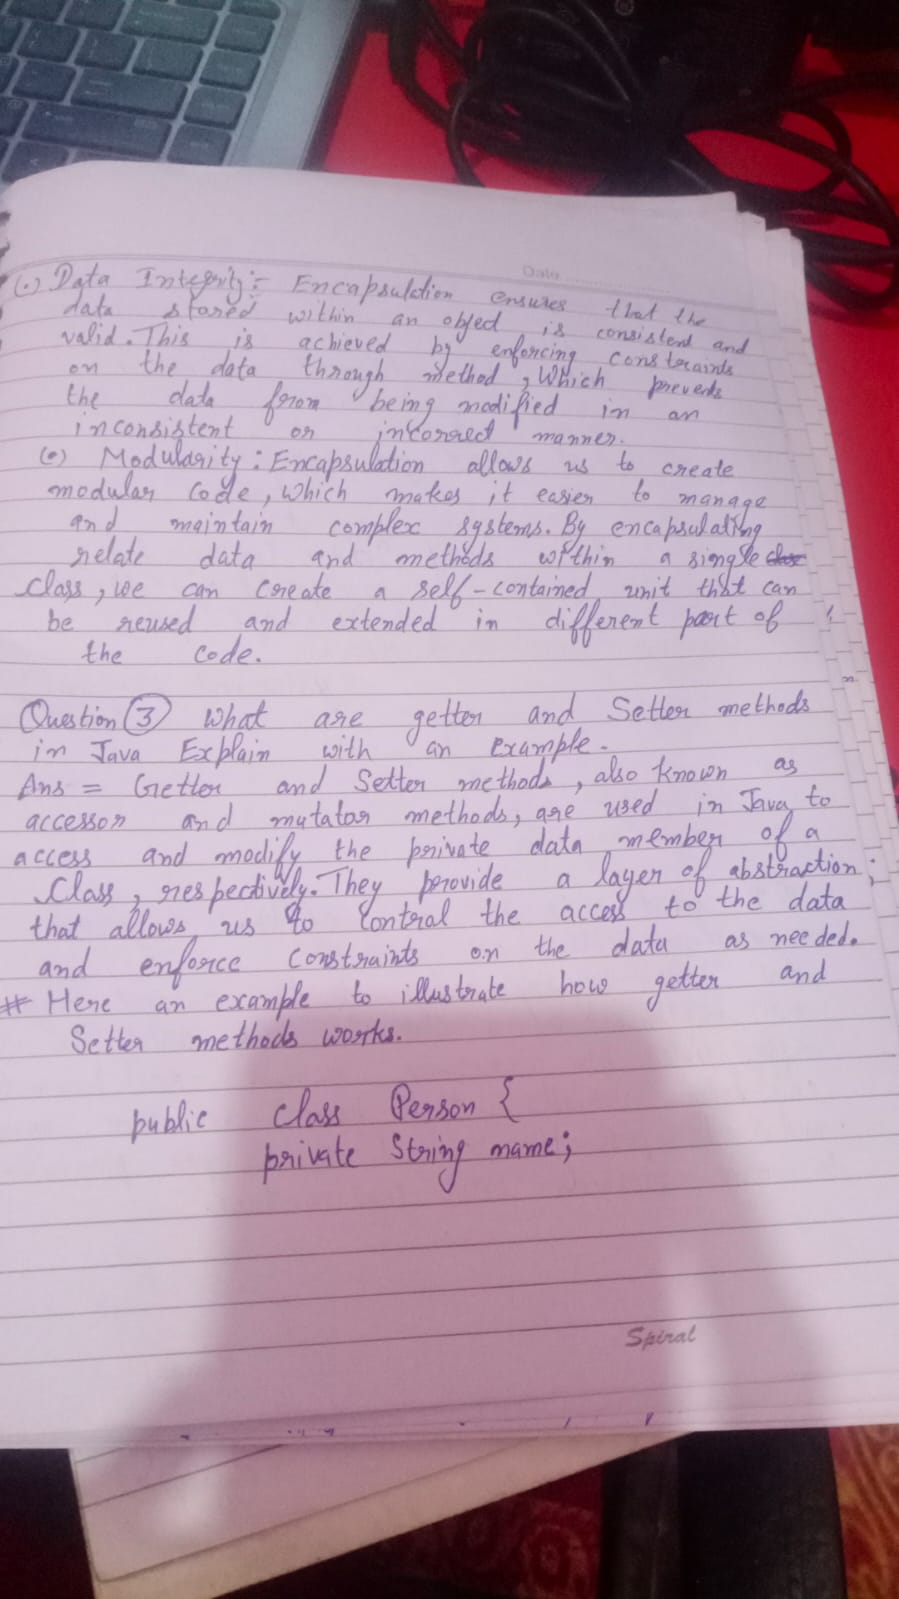 Date
(•) Data Integrity:- Encapsulation ensures that the
data stored within an object is consistent and
valid. This is achieved by enforcing constraints
on the data through method, Which prevents
the data from being modified in an
inconsistent or incorrect manner.
(•) Modularity: Encapsulation allows us to create
modular Code, Which makes it easier to manage
and maintain complex systems. By encapsulating
relate data and methods within a single
Class, we can create a self-contained unit that can
be reused and extended in different part of
the Code.
Question (3) What are getter and Setter methods
in Java Explain with an Example.
Ans = Getter and Setter methods, also known as
accessor and mutator methods, are used in Java to
access and modify the private data member of a
Class, respectively. They provide a layer of abstraction
that allows us to Control the access to the data
and enforce Constraints on the data as needed.
# Here an example to illustrate how getter and
Setter methods works.
public Class Person {
private String name;
Spiral